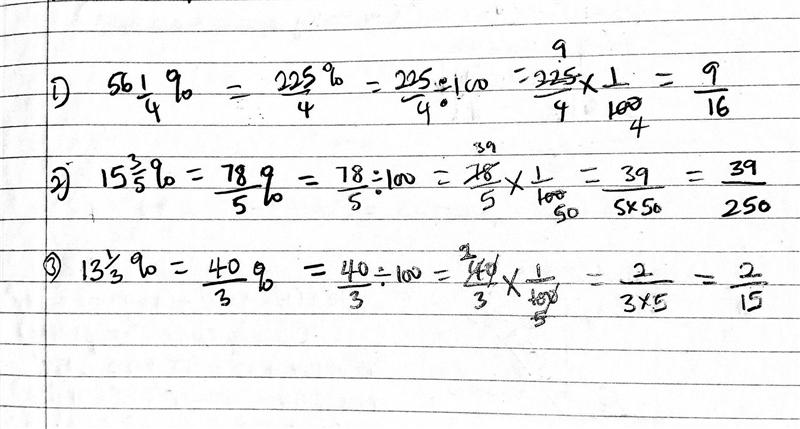 1) 56 1/4 % = 225/4 % = 225/4 ÷ 100 = 9 225/4 × 1/100 4 = 9/16
2) 15 3/5 % = 78/5 % = 78/5 ÷ 100 = 39 78/5 × 1/100 50 = 39/5×50 = 39/250
3) 13 1/3 % = 40/3 % = 40/3 ÷ 100 = 2 40/3 × 1/100 5 = 2/3×5 = 2/15